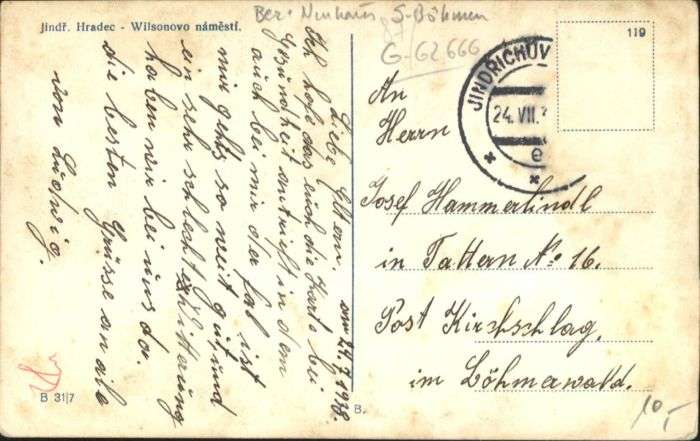 Jindř. Hradec - Wilsonovo náměstí.
Neuhaus S-Böhmen
G-62666
119
JINDŘICHŮV
24. VII.
e
am 24/7 1938.
Liebe Eltern.
Ich hofe das euch die Karte bei
Gesundheit antrieft in dem
auch bei mir der fal ist
mir gehts so weit gut und
ein sehr schlechte Witterung
haben wir bei uns da.
die besten Grüsse an ale
von Ludwig.
An
Herrn
Josef Hammerlindl
in Tattern No 16.
Post Kirschschlag,
im Böhmerwald.
B 31/7
B.
10,-